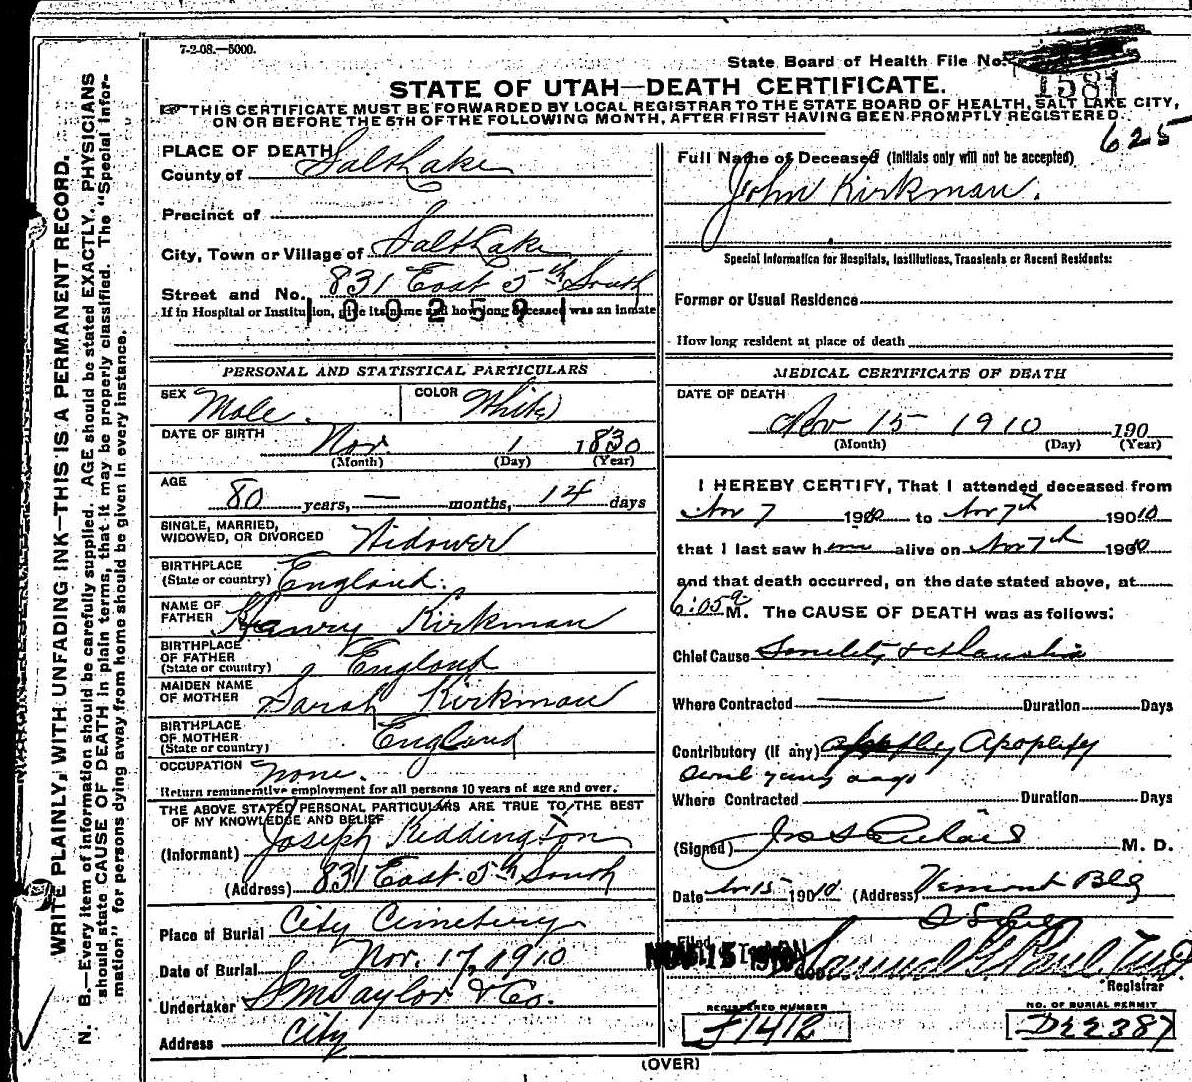 7-2-08.—5000.
State Board of Health File No.
1581
STATE OF UTAH—DEATH CERTIFICATE.
☞THIS CERTIFICATE MUST BE FORWARDED BY LOCAL REGISTRAR TO THE STATE BOARD OF HEALTH, SALT LAKE CITY,
ON OR BEFORE THE 5TH OF THE FOLLOWING MONTH, AFTER FIRST HAVING BEEN PROMPTLY REGISTERED.
625
PLACE OF DEATH
County of Salt Lake
Precinct of
City, Town or Village of Salt Lake
Street and No. 831 East 5th South
100259
If in Hospital or Institution, give its name and how long deceased was an inmate
PERSONAL AND STATISTICAL PARTICULARS
SEX Male.
COLOR White
DATE OF BIRTH Nov. 1 1830
(Month) (Day) (Year)
AGE
80 years, — months, 14 days
SINGLE, MARRIED,
WIDOWED, OR DIVORCED Widower
BIRTHPLACE
(State or country) England.
NAME OF
FATHER Henry Kirkman
BIRTHPLACE
OF FATHER
(State or country) England
MAIDEN NAME
OF MOTHER Sarah Kirkman
BIRTHPLACE
OF MOTHER
(State or country) England
OCCUPATION None.
Return remunerative employment for all persons 10 years of age and over.
THE ABOVE STATED PERSONAL PARTICULARS ARE TRUE TO THE BEST
OF MY KNOWLEDGE AND BELIEF
(Informant) Joseph Keddington
(Address) 831 East 5th South
Place of Burial City Cemetery
Date of Burial Nov. 17, 1910
Undertaker S M Taylor & Co.
Address City
Full Name of Deceased (Initials only will not be accepted)
John Kirkman.
Special Information for Hospitals, Institutions, Transients or Recent Residents:
Former or Usual Residence
How long resident at place of death
MEDICAL CERTIFICATE OF DEATH
DATE OF DEATH
Nov 15 1910 190
(Month) (Day) (Year)
I HEREBY CERTIFY, That I attended deceased from
Nov 7 1910 to Nov 7th 19010
that I last saw him alive on Nov 7th 1910
and that death occurred, on the date stated above, at
6:05 a M. The CAUSE OF DEATH was as follows:
Chief Cause Senility &
Where Contracted Duration Days
Contributory (If any) Apoplexy
years ago
Where Contracted Duration Days
(Signed) M. D.
Date Nov 15 19010 (Address) Vermont Bldg
Filed NOV 15 1910
Registrar
REGISTERED NUMBER
F1412
NO. OF BURIAL PERMIT
D22387
(OVER)
WRITE PLAINLY, WITH UNFADING INK—THIS IS A PERMANENT RECORD.
N. B.—Every item of information should be carefully supplied. AGE should be stated EXACTLY. PHYSICIANS
should state CAUSE OF DEATH in plain terms, that it may be properly classified. The "Special Infor-
mation" for persons dying away from home should be given in every instance.